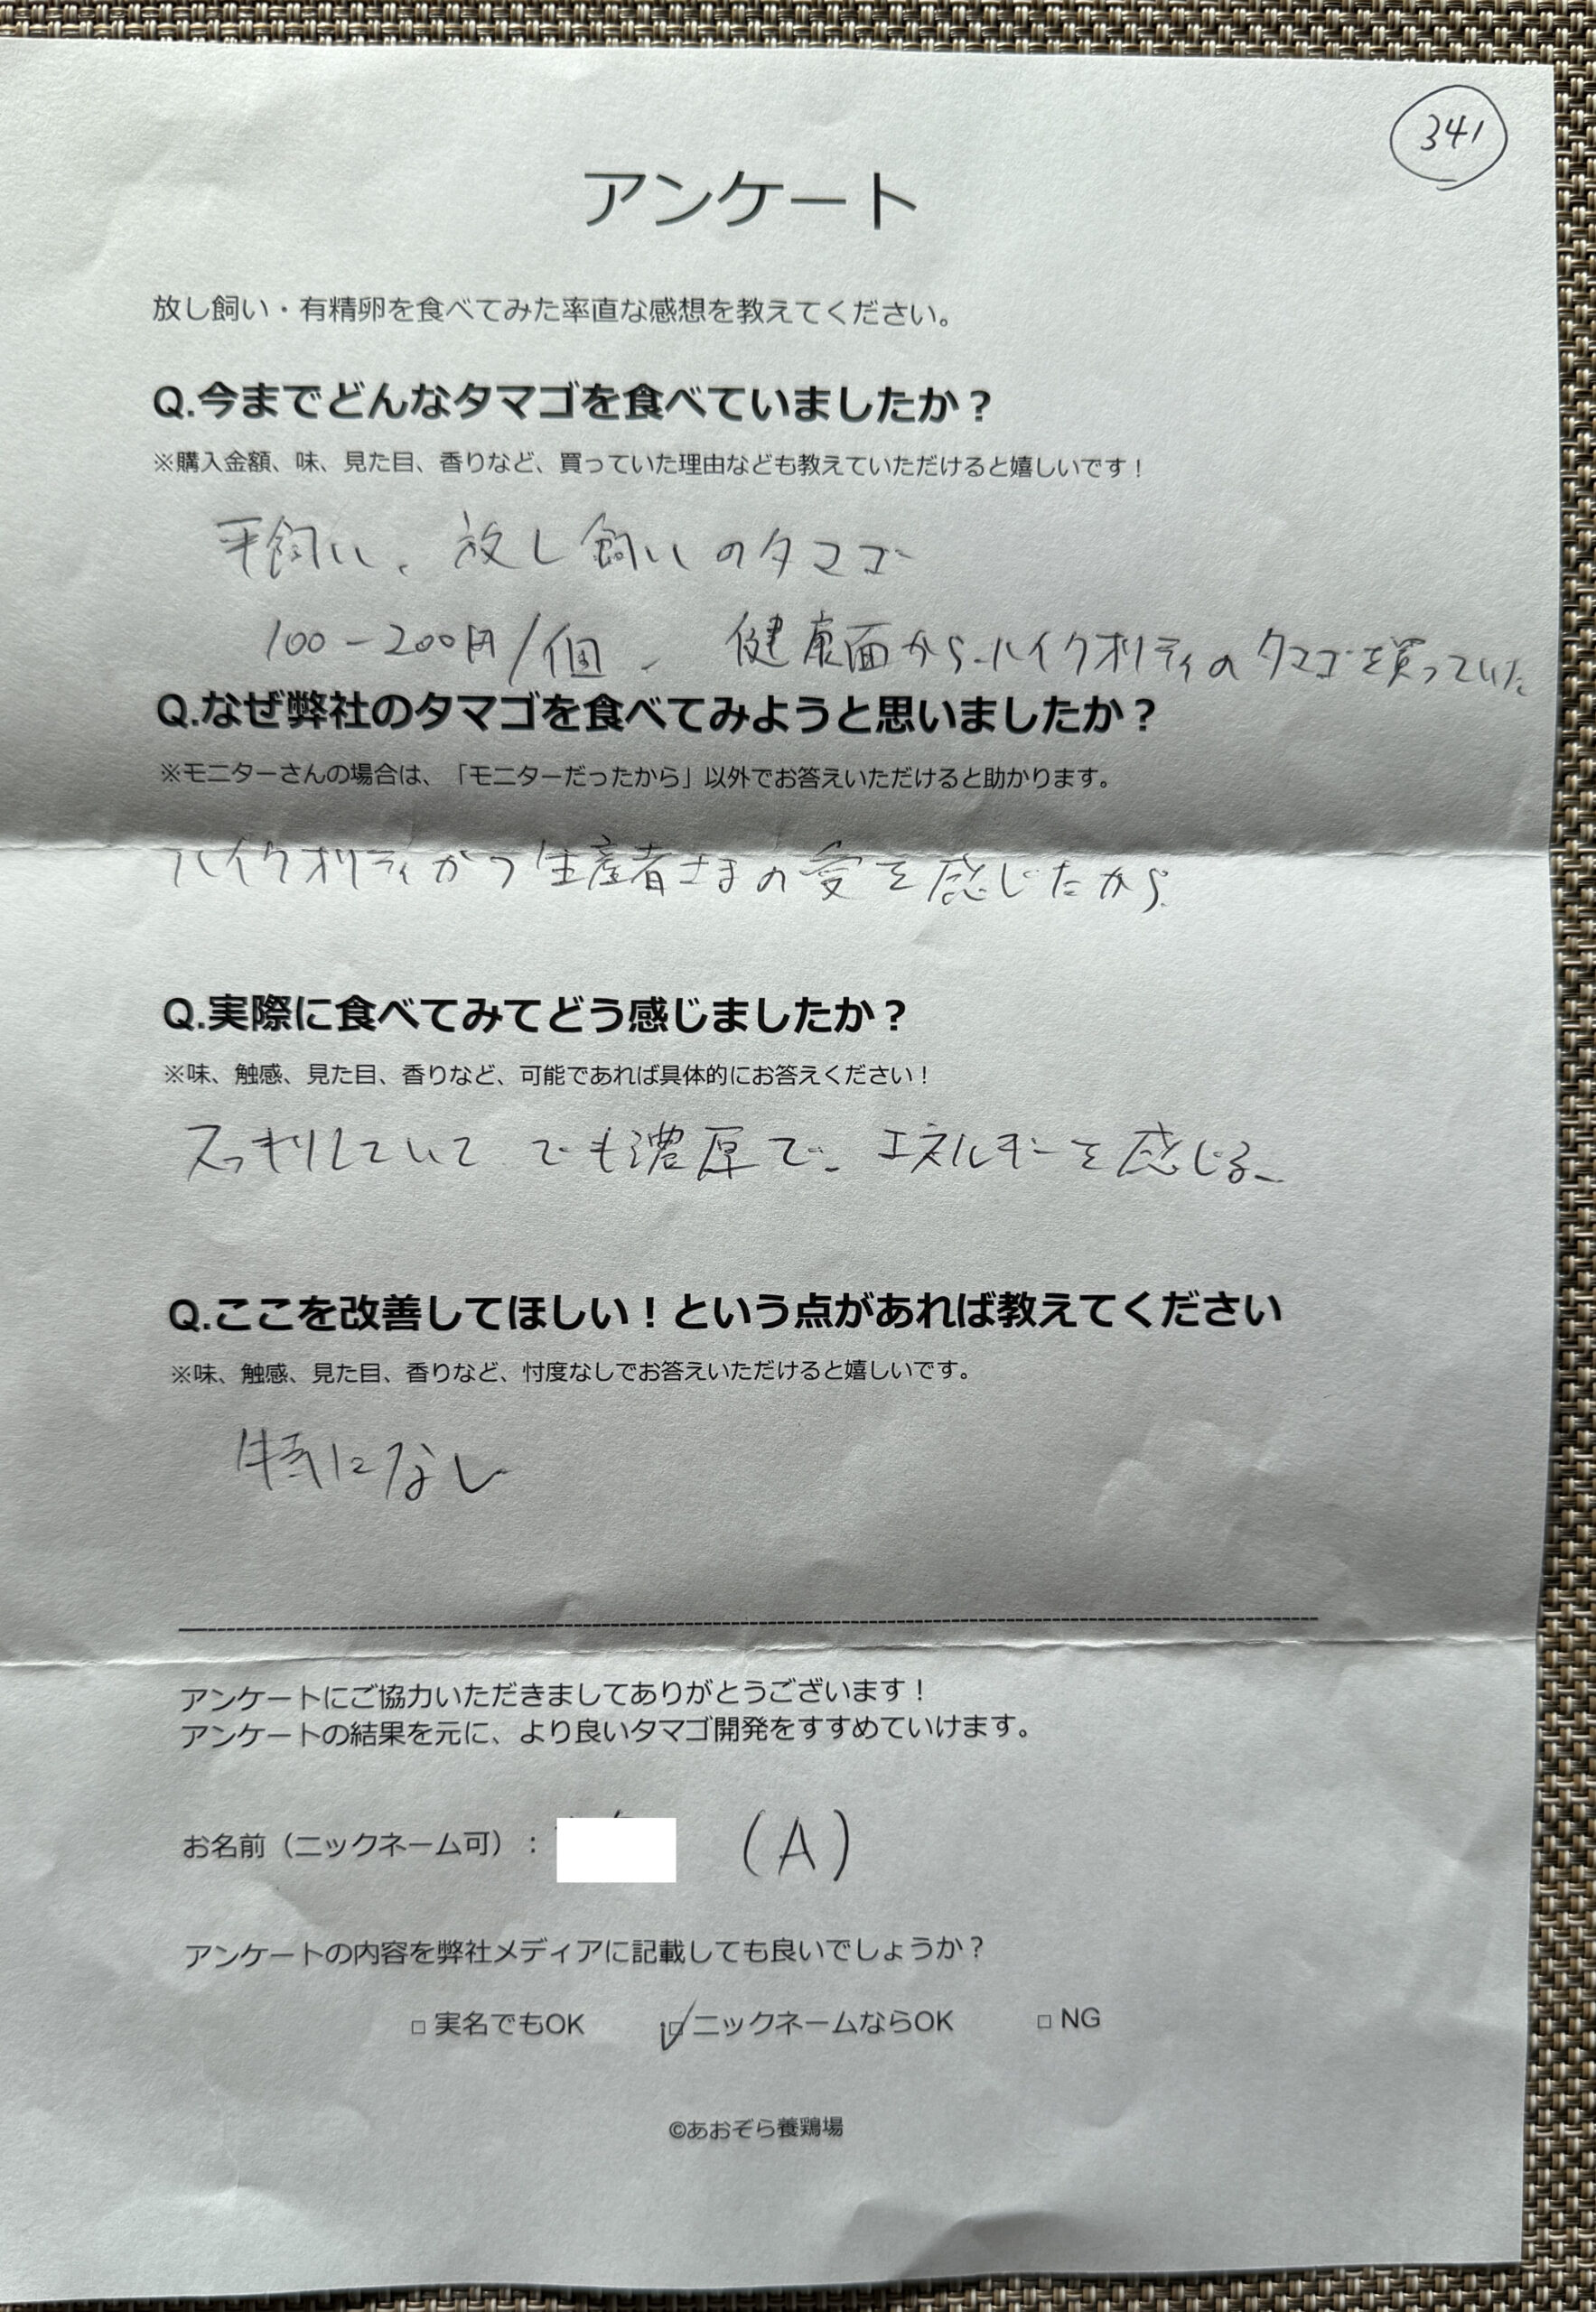 341
アンケート
放し飼い・有精卵を食べてみた率直な感想を教えてください。
Q.今までどんなタマゴを食べていましたか？
※購入金額、味、見た目、香りなど、買っていた理由なども教えていただけると嬉しいです！
平飼い、放し飼いのタマゴ
100-200円/個、健康面からハイクオリティのタマゴを買っていた
Q.なぜ弊社のタマゴを食べてみようと思いましたか？
※モニターさんの場合は、「モニターだったから」以外でお答えいただけると助かります。
ハイクオリティかつ生産者さまの愛を感じたから
Q.実際に食べてみてどう感じましたか？
※味、触感、見た目、香りなど、可能であれば具体的にお答えください！
スッキリしていて でも濃厚で、エネルギーを感じる、
Q.ここを改善してほしい！という点があれば教えてください
※味、触感、見た目、香りなど、忖度なしでお答えいただけると嬉しいです。
特になし
アンケートにご協力いただきましてありがとうございます！
アンケートの結果を元に、より良いタマゴ開発をすすめていけます。
お名前（ニックネーム可）： （A）
アンケートの内容を弊社メディアに記載しても良いでしょうか？
□ 実名でもOK ☑ ニックネームならOK □ NG
©あおぞら養鶏場